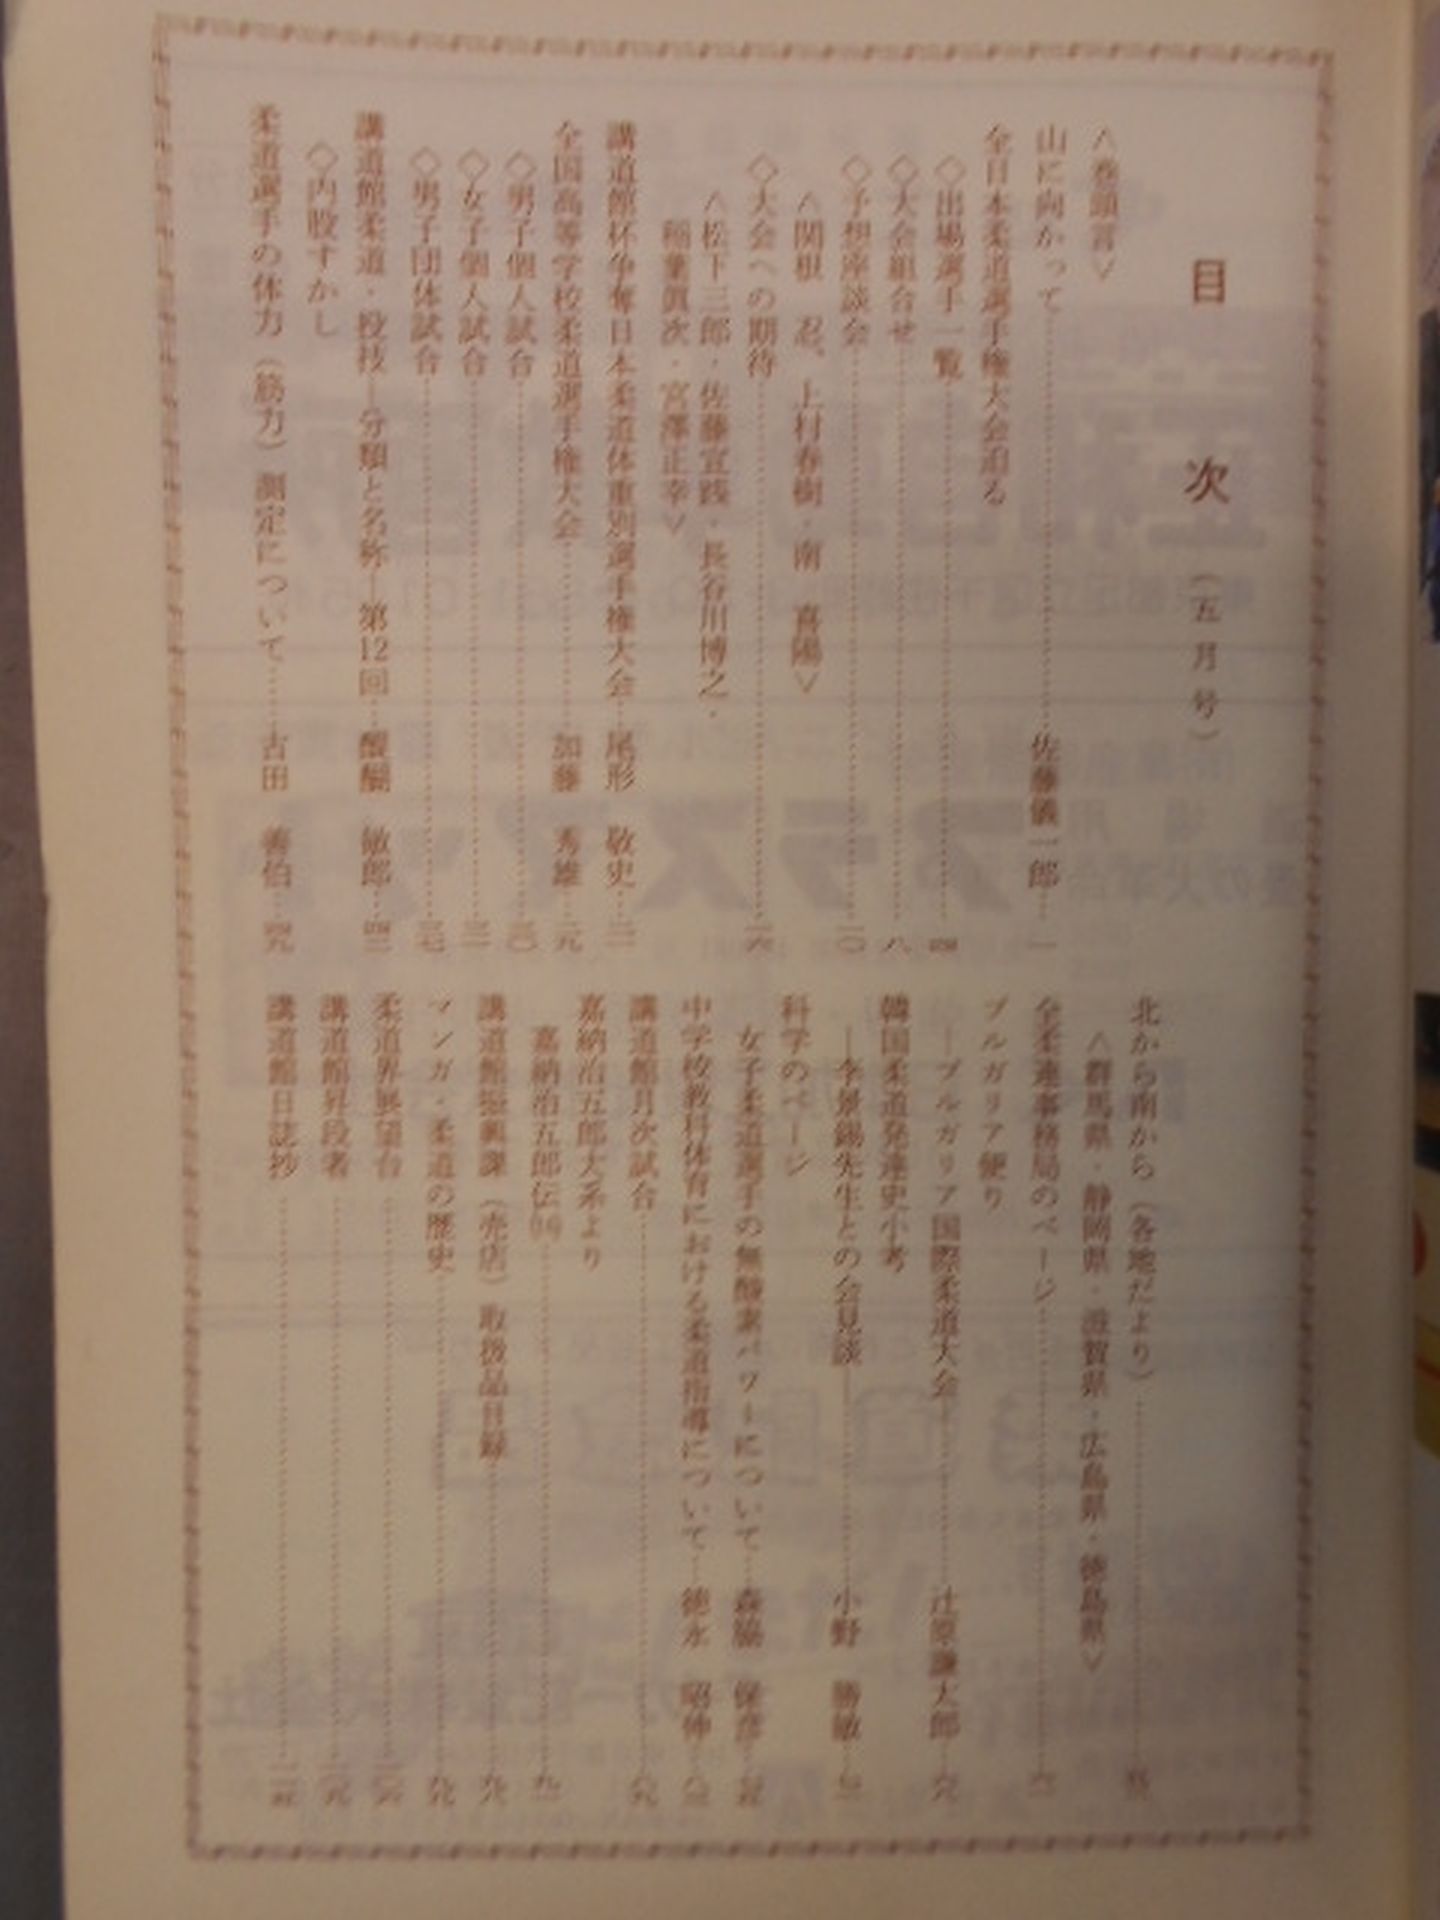 目次（五月号）
＜巻頭言＞
山に向かって……佐藤儀一郎…一
全日本柔道選手権大会迫る
◇出場選手一覧……四
◇大会組合せ……八
◇予想座談会……一〇
＜関根　忍、上村春樹・南　喜陽＞
◇大会への期待……一六
＜松下三郎・佐藤宣践・長谷川博之・
稲葉眞次・宮澤正幸＞
講道館杯争奪日本柔道体重別選手権大会…尾形　敬史…
全国高等学校柔道選手権大会……加藤　秀雄…
◇男子個人試合……
◇女子個人試合……
◇男子団体試合……
講道館柔道・投技―分類と名称―第12回…醍醐　敏郎…
◇内股すかし
柔道選手の体力（筋力）測定について……古田　善伯…
北から南から（各地だより）……
＜群馬県・静岡県・滋賀県・広島県・徳島県＞
全柔連事務局のページ……
ブルガリア便り
―ブルガリア国際柔道大会―……辻原謙太郎…
韓国柔道発達史小考
―李景錫先生との会見談―……小野　勝敏…
科学のページ
女子柔道選手の無酸素パワーについて…森脇　保彦…
中学校教科体育における柔道指導について…徳永　昭伸…
講道館月次試合……
嘉納治五郎大系より
嘉納治五郎伝……
講道館振興課（売店）取扱品目録……
マンガ・柔道の歴史……
柔道界展望台……
講道館昇段者……
講道館日誌抄……